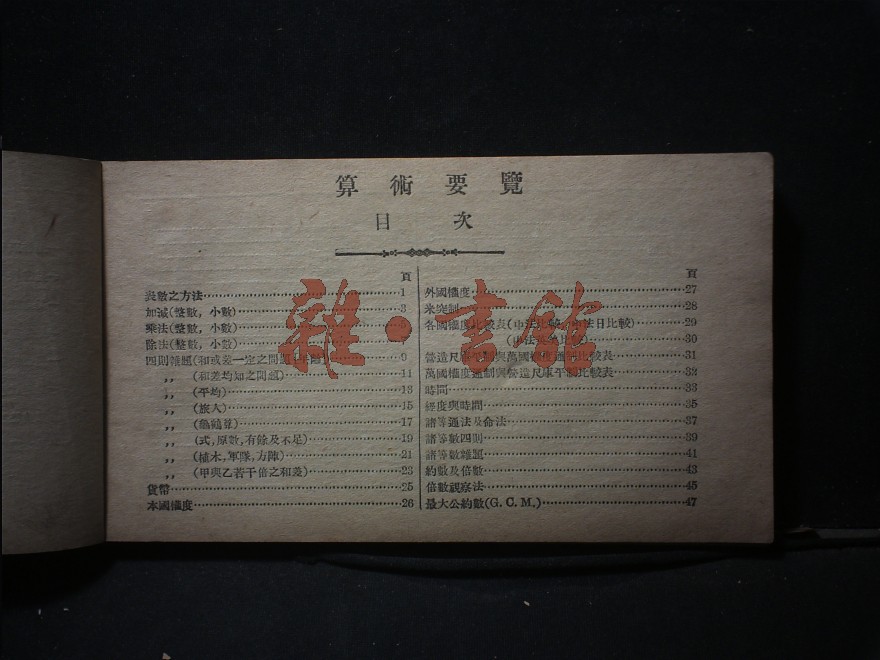 算術要覽
目次
頁
數之方法 1
加減(整數, 小數)
乘法(整數, 小數)
除法(整數, 小數)
四則雜題(和或差一定之問題 9
,, (和差均知之問題) 11
,, (平均) 13
,, (旅人) 15
,, (龜鶴算) 17
,, (式, 原數, 有餘及不足) 19
,, (植木, 軍隊, 方陣) 21
,, (甲與乙若干倍之和差) 23
貨幣 25
本國權度 26
頁
外國權度 27
米突制 28
各國權度比較表(中法比較 中法日比較) 29
30
營造尺庫平制與萬國權度通制比較表 31
萬國權度通制與營造尺庫平制比較表 32
時間 33
經度與時間 35
諸等通法及命法 37
諸等數四則 39
諸等數雜題 41
約數及倍數 43
倍數視察法 45
最大公約數(G. C. M.) 47
雜·書館